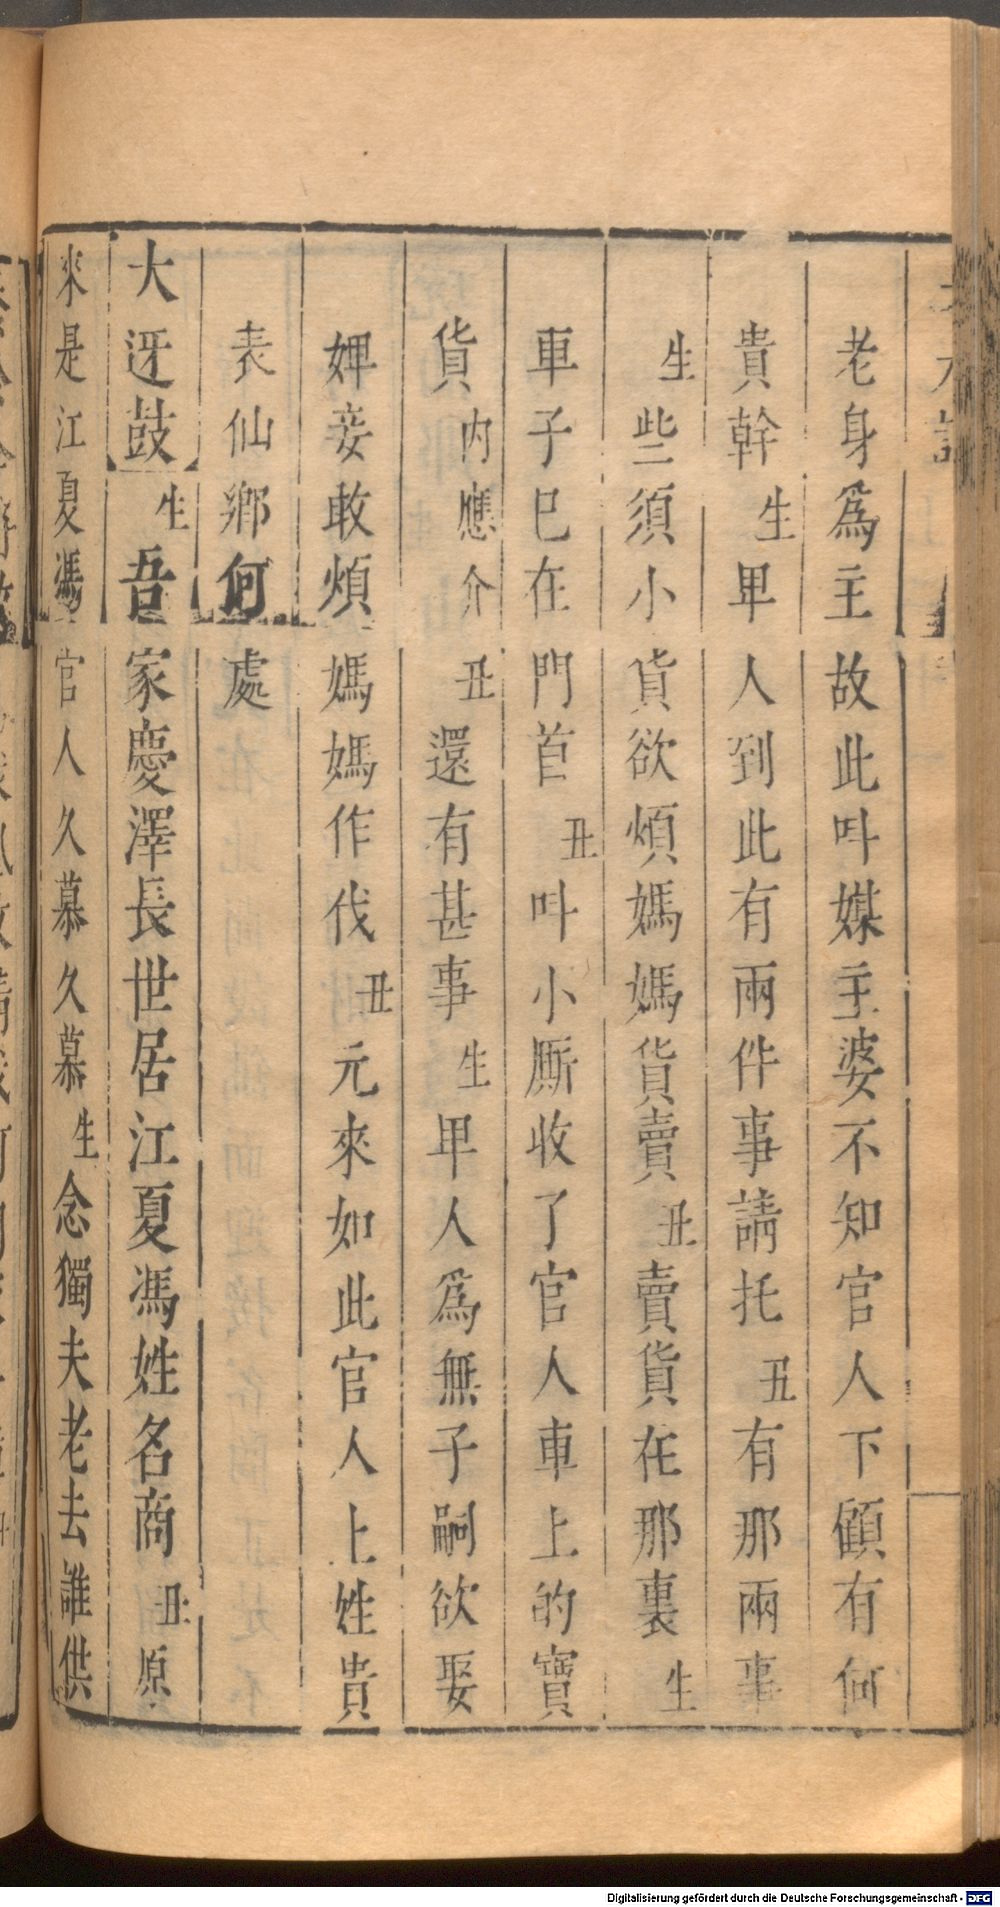 老身爲主故此呌媒主婆不知官人下顧有何
貴幹生畢人到此有兩件事請托丑有那兩事
生些須小貨欲煩媽媽貨賣丑賣貨在那裏生
車子巳在門首丑呌小厮收了官人車上的寶
貨內應介丑還有甚事生畢人爲無子嗣欲娶
婢妾敢煩媽媽作伐丑元來如此官人上姓貴
表仙鄉何處
大迓鼓生吾家慶澤長世居江夏馮姓名商丑原
來是江夏馮官人久慕久慕生念獨夫老去誰供
Digitalisierung gefördert durch die Deutsche Forschungsgemeinschaft - DFG